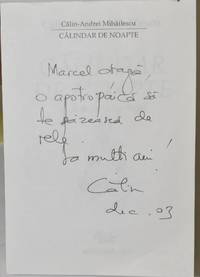 Călin-Andrei Mihăilescu
CĂLINDAR DE NOAPTE
Marcel dragă,
o apotropaică să
te păzească de
rele.
La mulți ani!
Călin
dec. 03